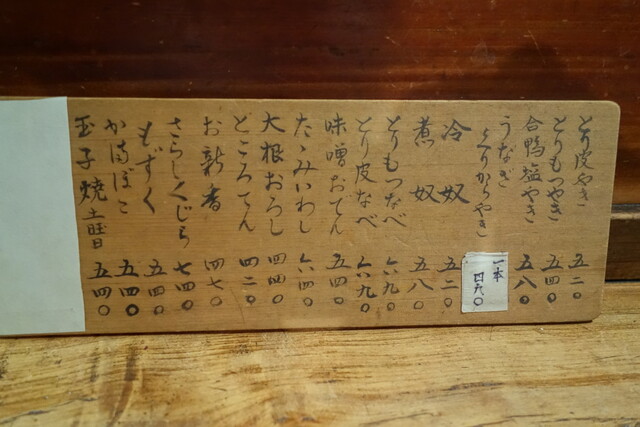 とり皮やき 五二〇
とりもつやき 五四〇
合鴨塩やき 五八〇
うなぎ
くりからやき 一本 四九〇
冷奴 五二〇
煮奴 五八〇
とりもつなべ 六九〇
とり皮なべ 六九〇
味噌おでん 五四〇
たゝみいわし 六四〇
大根おろし 四四〇
ところてん 四二〇
お新香 四七〇
さらしくじら 七四〇
もずく 五四〇
かまぼこ 五四〇
玉子焼 土曜日 五四〇